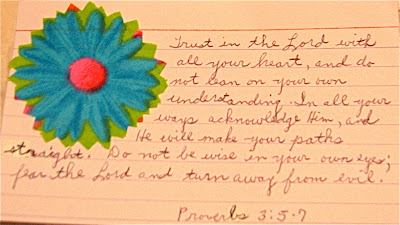 Trust in the Lord with
all your heart, and do
not lean on your own
understanding. In all your
ways acknowledge Him, and
He will make your paths
straight. Do not be wise in your own eyes;
fear the Lord and turn away from evil.
Proverbs 3:5-7